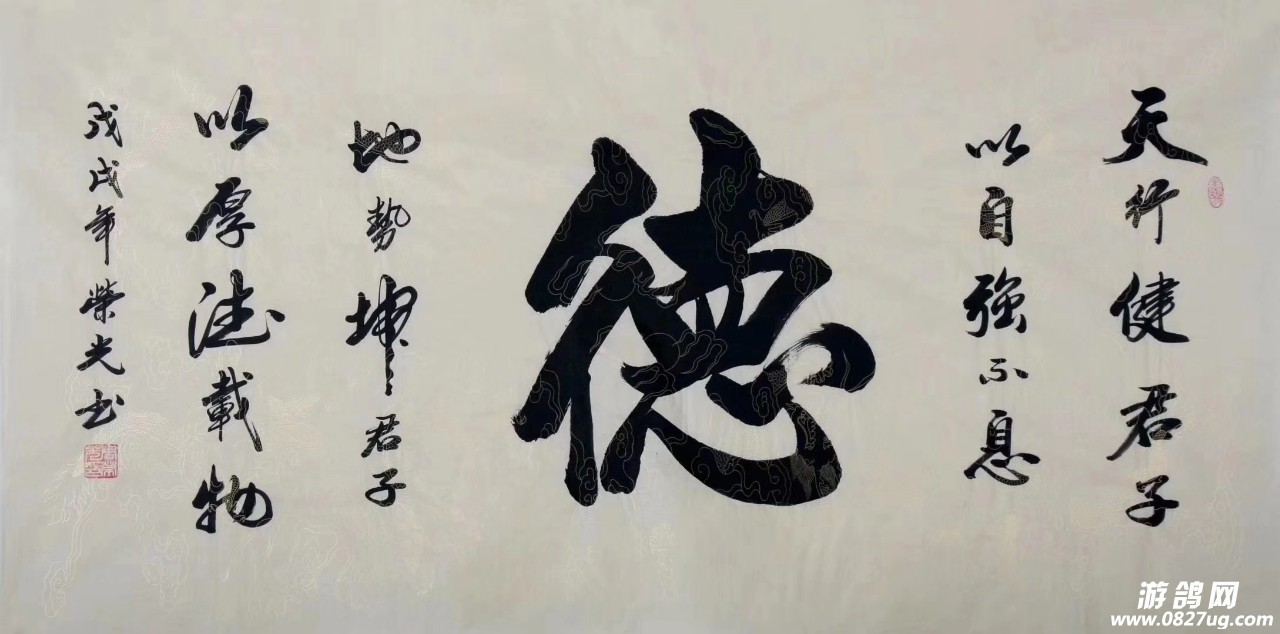 天行健君子
以自強不息
德
地勢坤君子
以厚德載物
戊戌年榮光书
游鸽网
www.0827ug.com